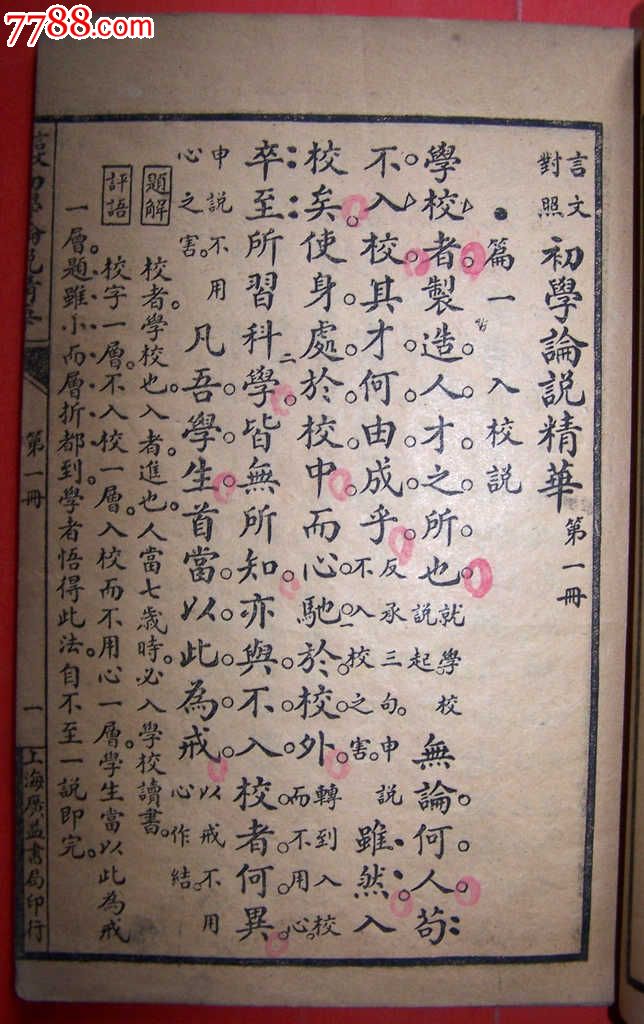 7788.com
中国收藏热线
言文對照 初學論說精華 第一冊
篇一 入校說
學校者製造人才之所也。就學校說起。無論何人。苟
不入校。其才何由成乎。反承三句。申說不入校之害。雖然入
校矣。使身處於校中。而心馳於校外。轉到入校而不用心。
卒至所習科學。皆無所知。亦與不入校者何異。
申說不用心之害。凡吾學生。首當以此為戒。以戒不用心作結。
題解 校者學校也。入者進也。人當七歲時。必入學校讀書。
評語 校字一層。不入校一層。入校而不用心一層。學生當以此為戒
一層。題雖小而層折都到。學者悟得此法。自不至一說即完。
第一冊 一 上海廣益書局印行